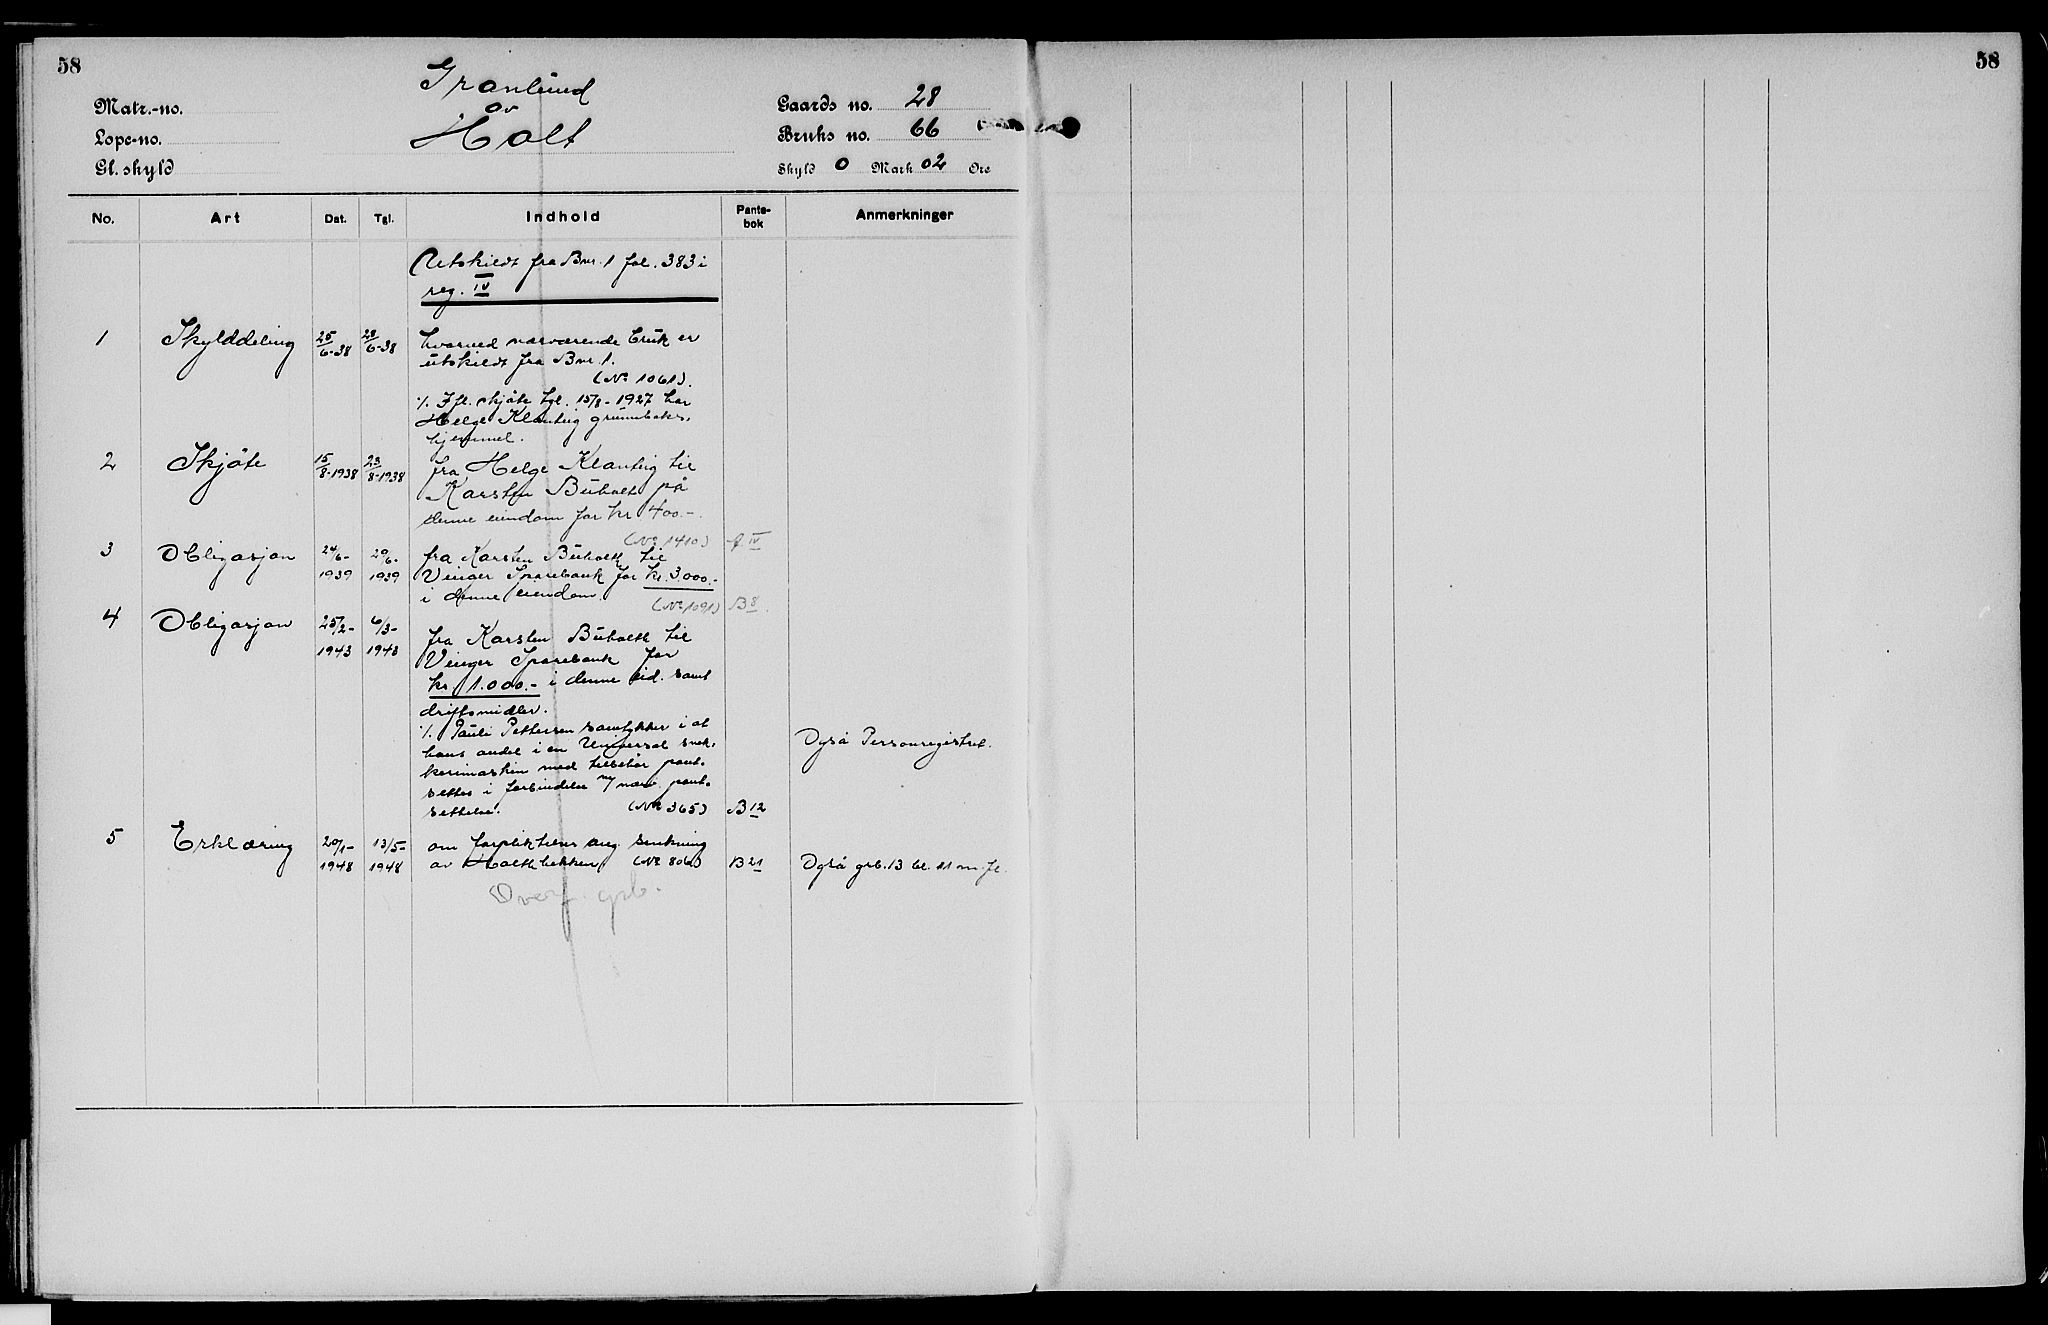 58
58
Granlund
av
Holt
Matr.-no.
Løpe-no.
Gl. skyld
Gaards no. 28
Bruks no. 66
Skyld 0 Mark 02 Øre
No. Art Dat. Tgl. Indhold Pante-bok Anmerkninger
Utskildt fra Bnr. 1 fol. 383 i
reg. IV
1 Skylddeling 25/6-38 28/6-38 hvorved nærværende bruk er
utskildt fra Bnr. 1.
(No 1061).
./. Ifl. skjøte tgl. 15/8-1927 har
Helge Klanbig grunnboks-
hjemmel.
2 Skjøte 15/8-1938 23/8-1938 fra Helge Klanbig til
Karsten Buholt på
denne eiendom for kr 400.-.
(No 1410) A IV
3 Obligasjon 24/6-1939 29/6-1939 fra Karsten Buholt til
Vinger Sparebank for kr. 3.000.-
i denne eiendom.
(No 1091) B 8.
4 Obligasjon 25/2-1943 6/3-1943 fra Karsten Buholt til
Vinger Sparebank for
kr. 1.000.- i denne eid. samt
driftsmidler.
./. Pauli Pettersen samtykker i at
hans andel i en Universal snek-
kerimaskin med tilbehør pant-
settes i forbindelse m/ nærv. pant-
settelse. (No 365) B 12
Også Personregistret.
5 Erklæring 20/1-1948 13/5-1948 om forpliktelser ang. senkning
av Holtbekken (No 806) B 21 Også grb. 13 bl. 11 m. fl.
Overf. grb.